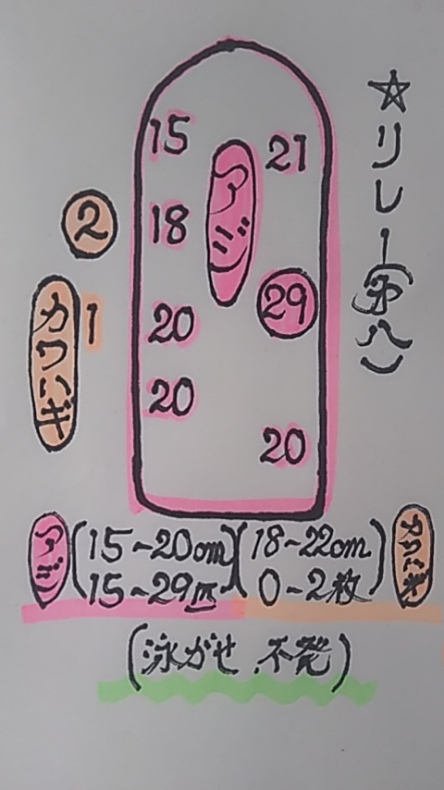 ☆リレー(第八)
アジ
15
18
20
20
21
29
20
2
1
カワハギ
アジ(15~20cm)(18~22cm)カワハギ
15~29匹 0~2枚
(泳がせ、不発)